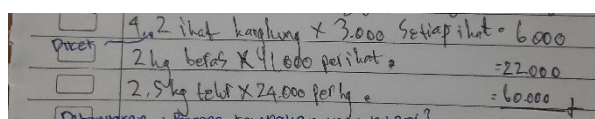 4. 2 ikat kangkung x 3.000 Setiap ikat = 6000
2 kg beras x 11.000 per ikat = 22.000
2,5 kg telur x 24.000 per kg = 60.000 +